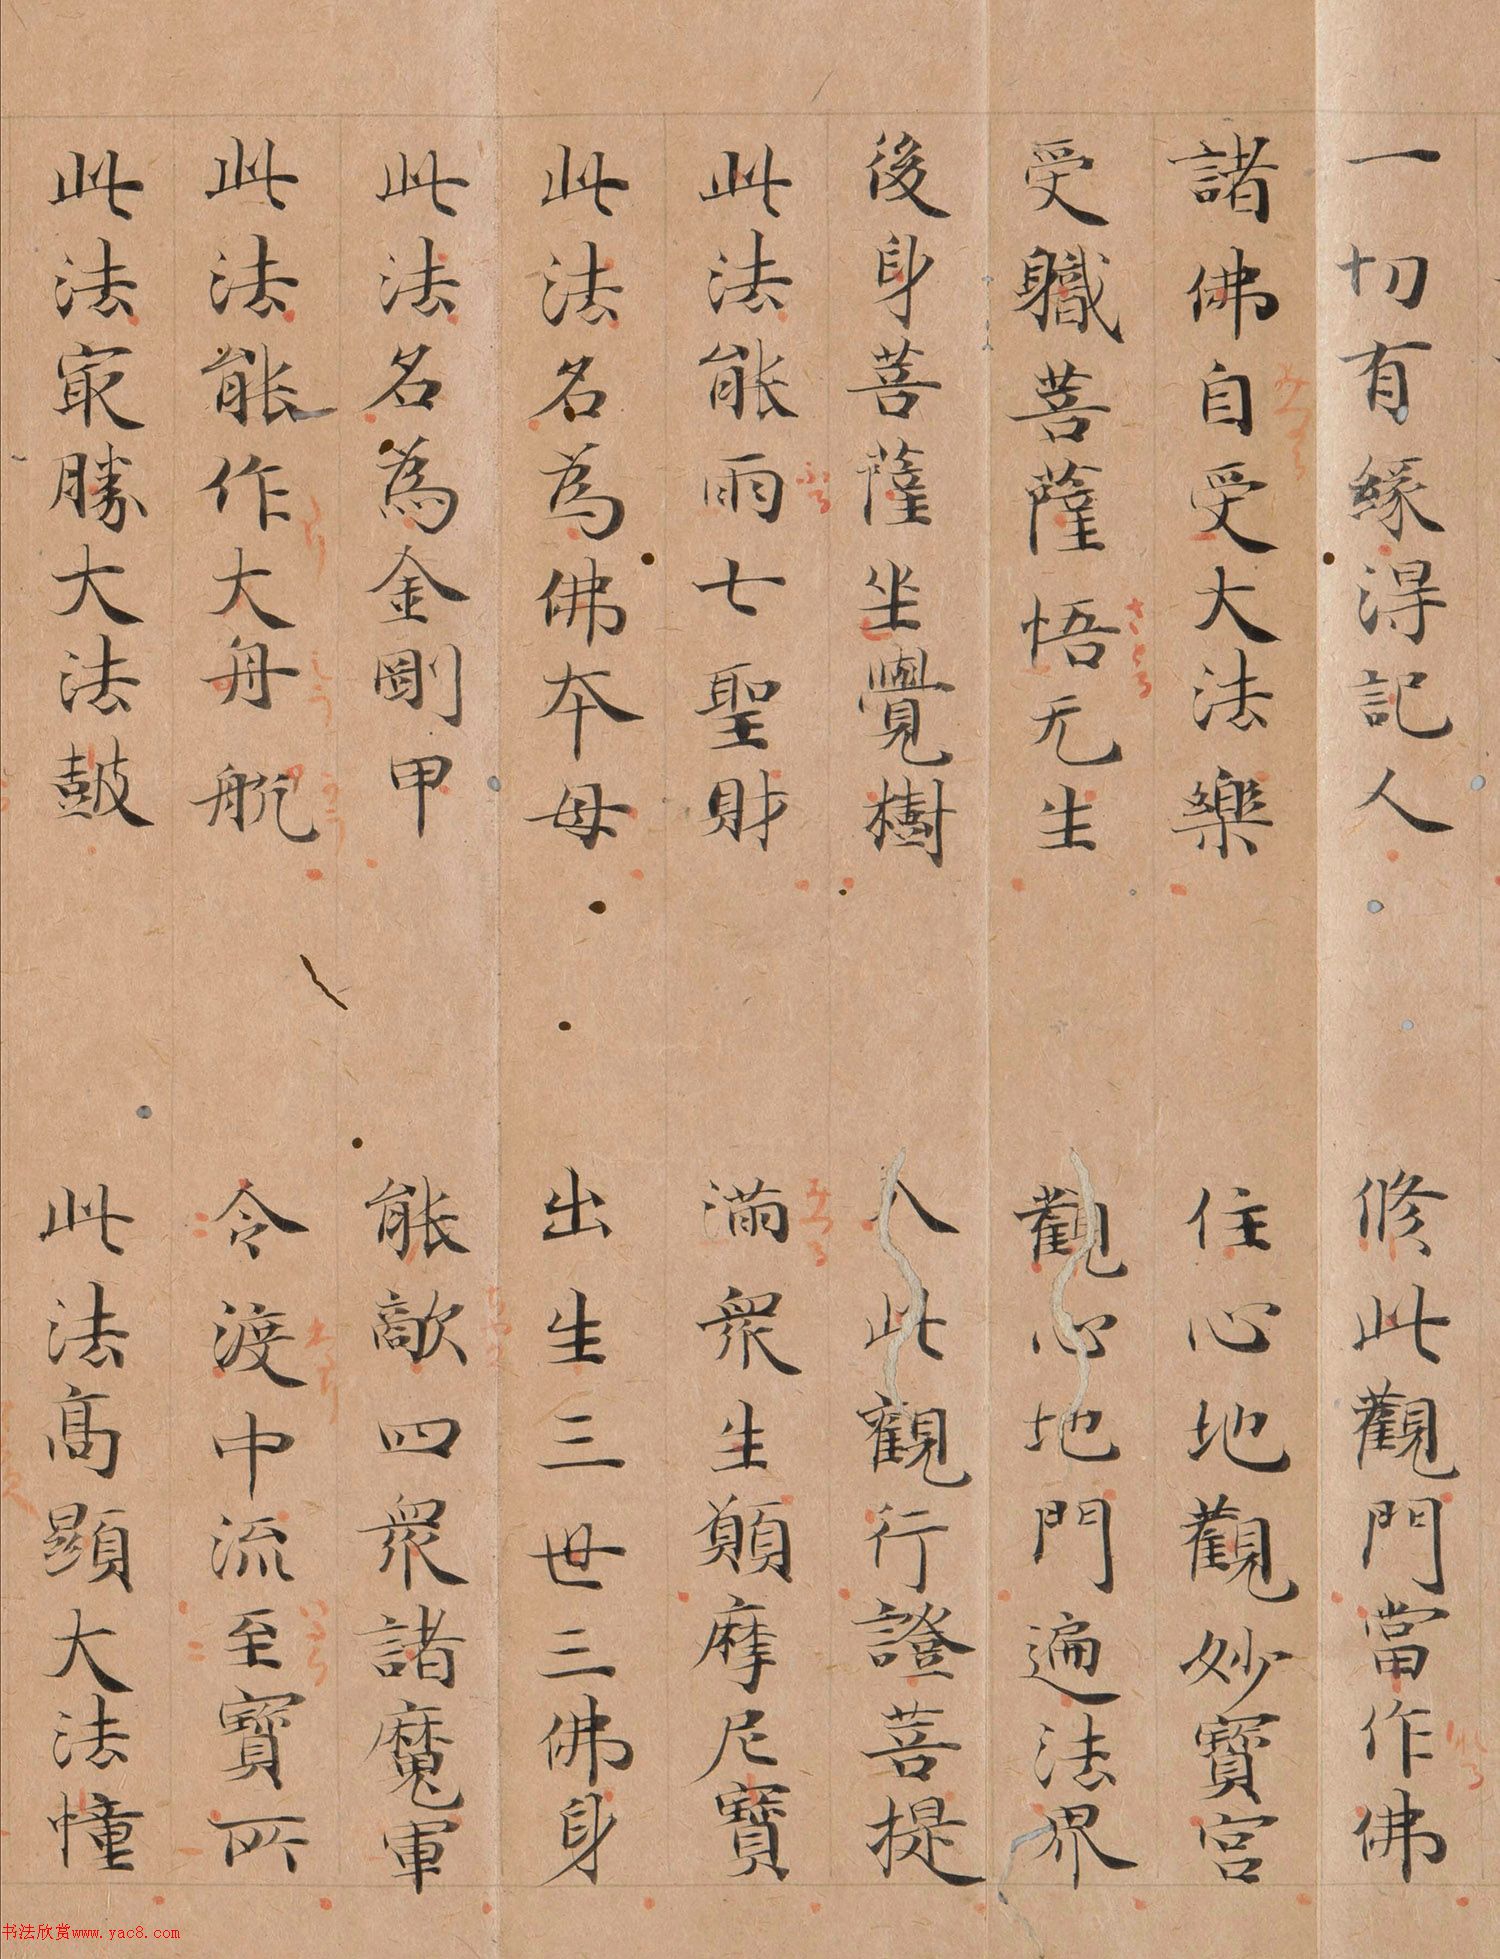 一切有緣得記人　修此觀門當作佛
諸佛自受大法樂　住心地觀妙寶宮
受職菩薩悟无生　觀心地門遍法界
後身菩薩坐覺樹　入此觀行證菩提
此法能雨七聖財　滿衆生願摩尼寶
此法名為佛本母　出生三世三佛身
此法名為金剛甲　能敵四衆諸魔軍
此法能作大舟航　令渡中流至寶所
此法冣勝大法鼓　此法高顯大法幢
书法欣赏www.yac8.com